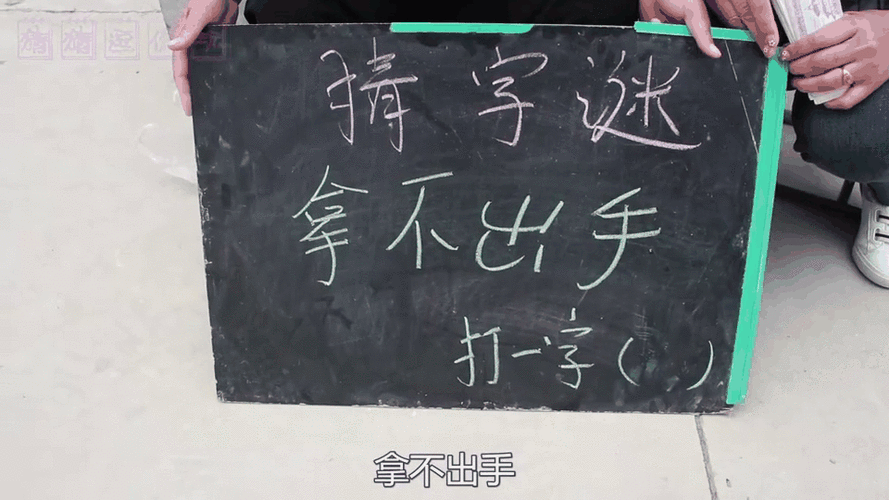 猜字谜
拿不出手
打一字（ ）
拿不出手